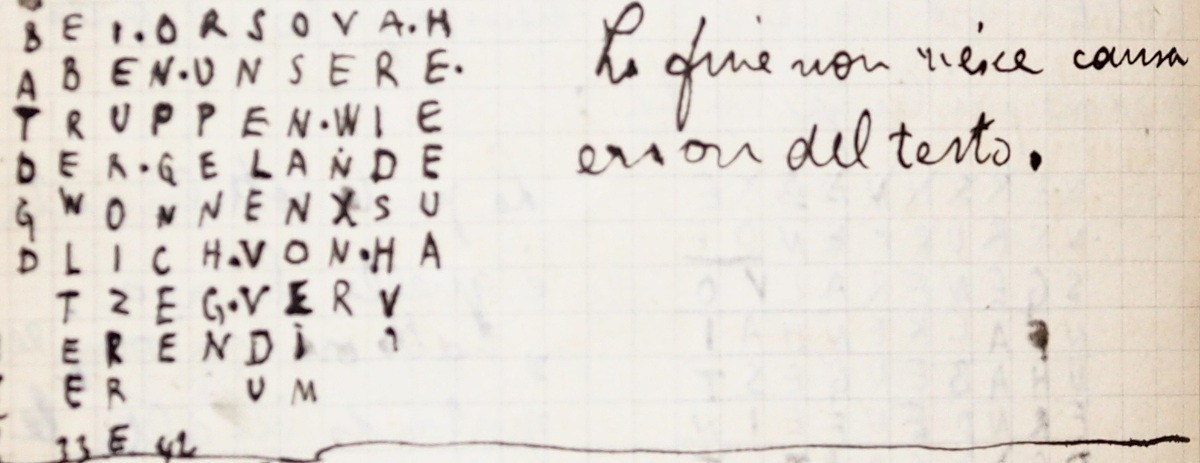 B E I . O R S O V A . H
A B E N . U N S E R E .
T R U P P E N . W I E
D E R . G E L A N D E
G W O N N E N X S U
D L I C H . V O N . H A
T Z E G . V E R V
E R E N D I
E R U M
33 E 42
La fine non riesce causa
errori del testo.